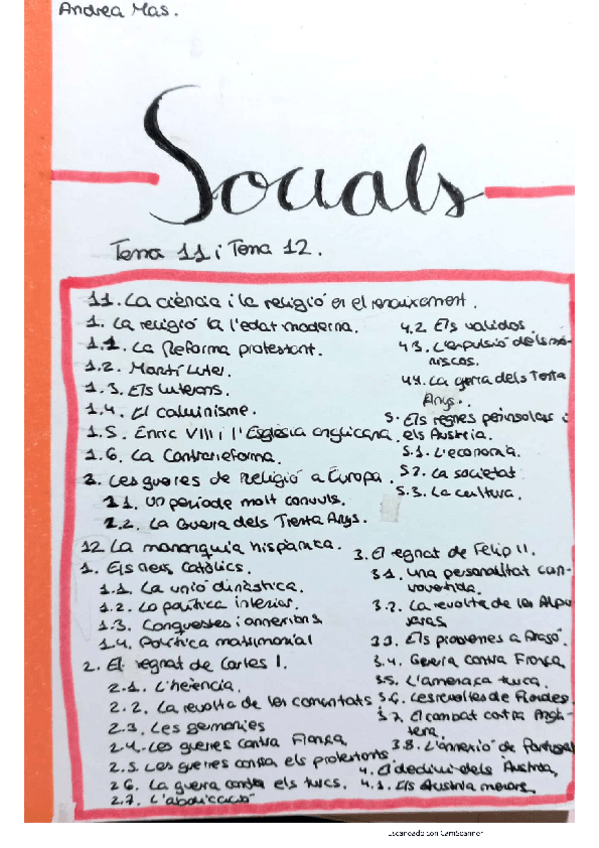 Andrea Mas.
Socials
Tema 11 i Tema 12.
11. La ciència i la religió en el renaixement.
1. La religió a l'edat moderna.
1.1. La Reforma protestant.
1.2. Martí Luter.
1.3. Els luterans.
1.4. El calvinisme.
1.5. Enric VIII i l'Església anglicana.
1.6. La Contrareforma.
2. Les guerres de Religió a Europa.
2.1. Un període molt convuls.
2.2. La Guerra dels Trenta Anys.
12. La monarquia hispànica.
1. Els reis Catòlics.
1.1. La unió dinàstica.
1.2. La política interior.
1.3. Conquestes i annexions
1.4. Política matrimonial
2. El regnat de Carles I.
2.1. L'herència.
2.2. La revolta de les comunitats
2.3. Les germanies
2.4. Les guerres contra França.
2.5. Les guerres contra els protestants.
2.6. La guerra contra els turcs.
2.7. L'abdicació
3. El regnat de Felip II.
3.1. Una personalitat con-
trovertida.
3.2. La revolta de les Alpu-
jarras.
3.3. Els problemes a Aragó.
3.4. Guerra contra França.
3.5. L'amenaça turca.
3.6. Les revoltes de Flandes.
3.7. El combat contra Angla-
terra.
3.8. L'annexió de Portugal
4. El declivi dels Àustria.
4.1. Els Àustria menors.
4.2. Els validos.
4.3. L'expulsió dels mo-
riscos.
4.4. La guerra dels Trenta
Anys.
5. Els regnes peninsulars i
els Àustria.
5.1. L'economia.
5.2. La societat
5.3. La cultura.
Escaneado con CamScanner